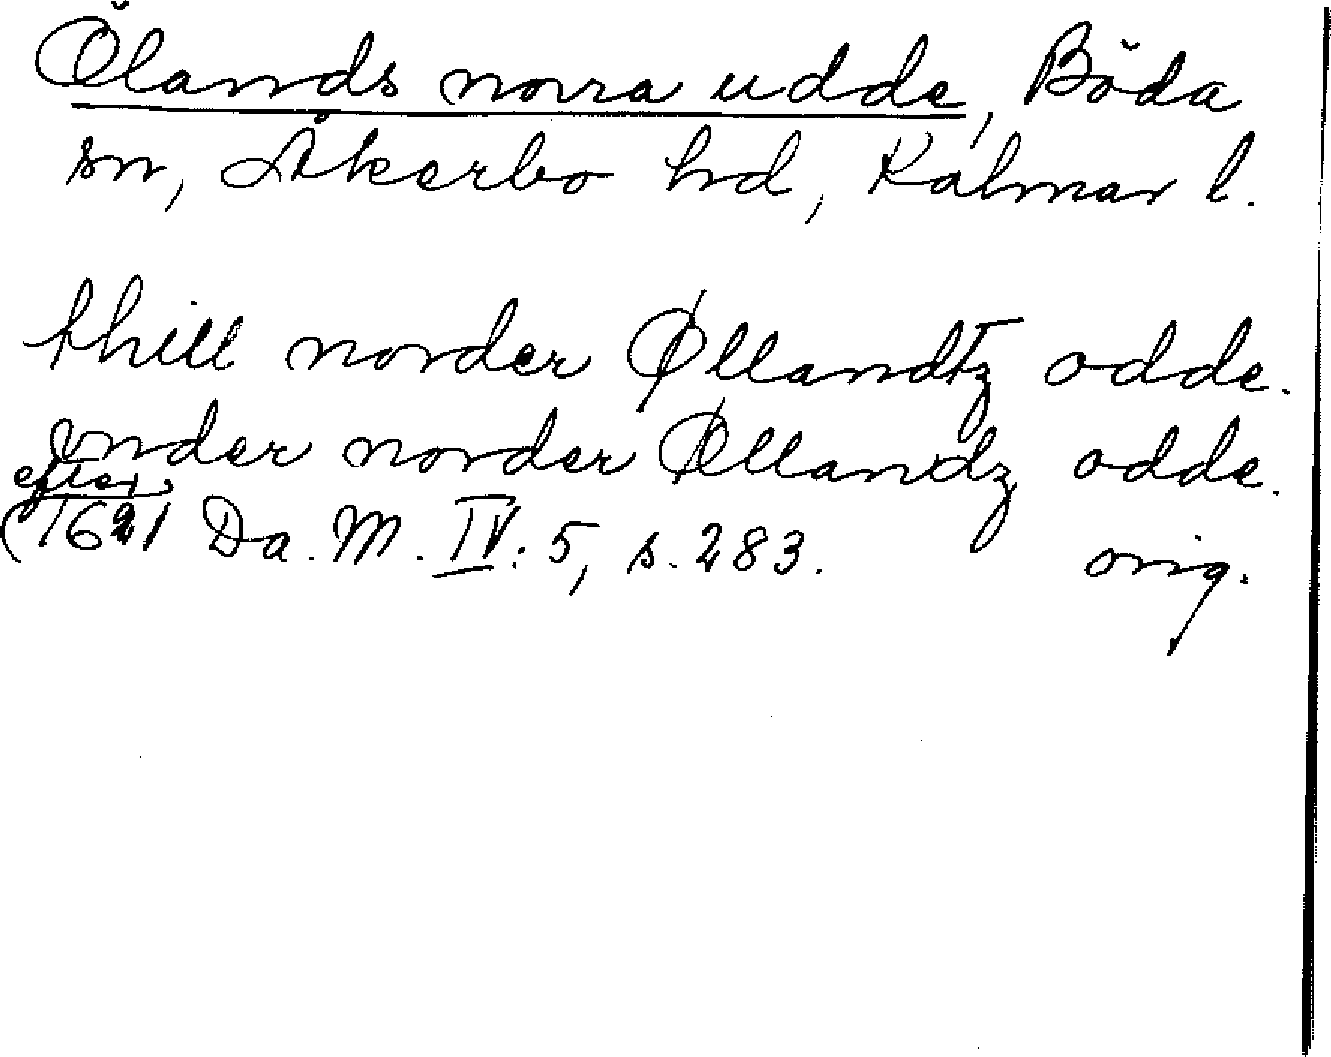 Ölands norra udde, Böda
sn, Åkerbo hd, Kalmar l.
thill norder Øllandtz odde.
vnder norder Øllandz odde.
efter
(1621 Da. M. IV: 5, s. 283. orig.